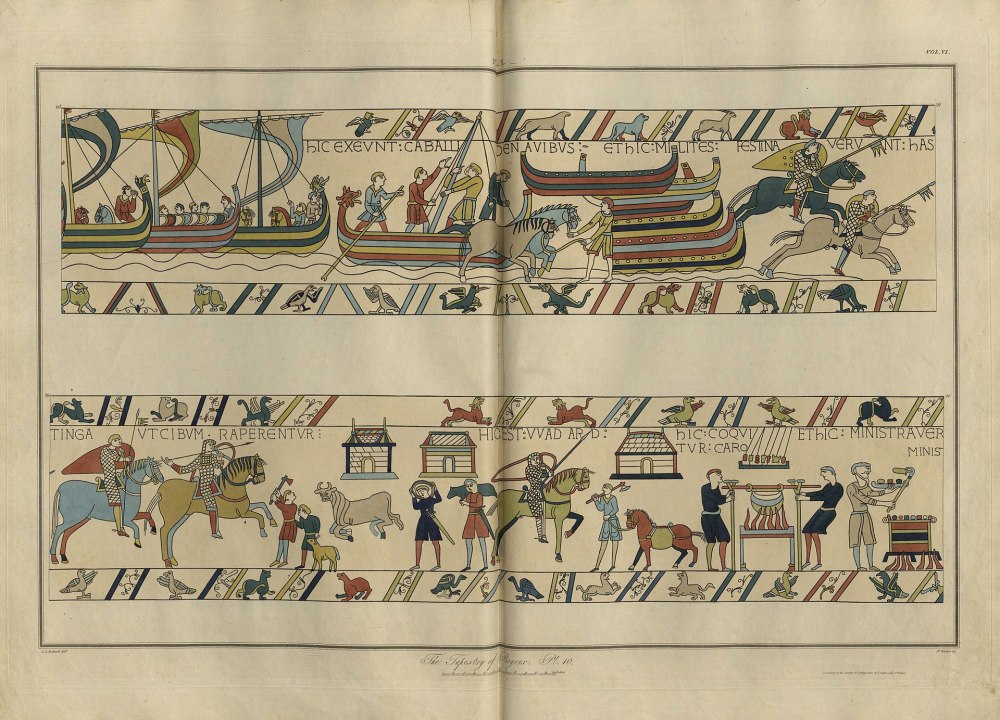 VOL. VI.
HIC EXEVNT: CABALLI DENAVIBVS:- ETHIC: MILITES: FESTINA VERVNT: HAS
TINGA VTCIBVM · RAPERENTVR: HIC EST: VVADARD: HIC: COQVI ETHIC: MINISTRAVER
TVR: CARO MINIS
The Tapestry of Bayeux. Pl. 10.